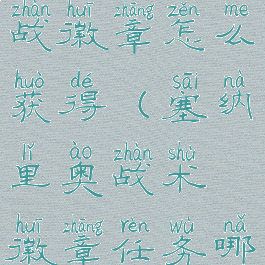 zhàn huī zhāng zěn me
战徽章怎么
huò dé sāi nà
获得(塞纳
lǐ ào zhàn shù
里奥战术
huī zhāng rèn wù nǎ
徽章任务哪